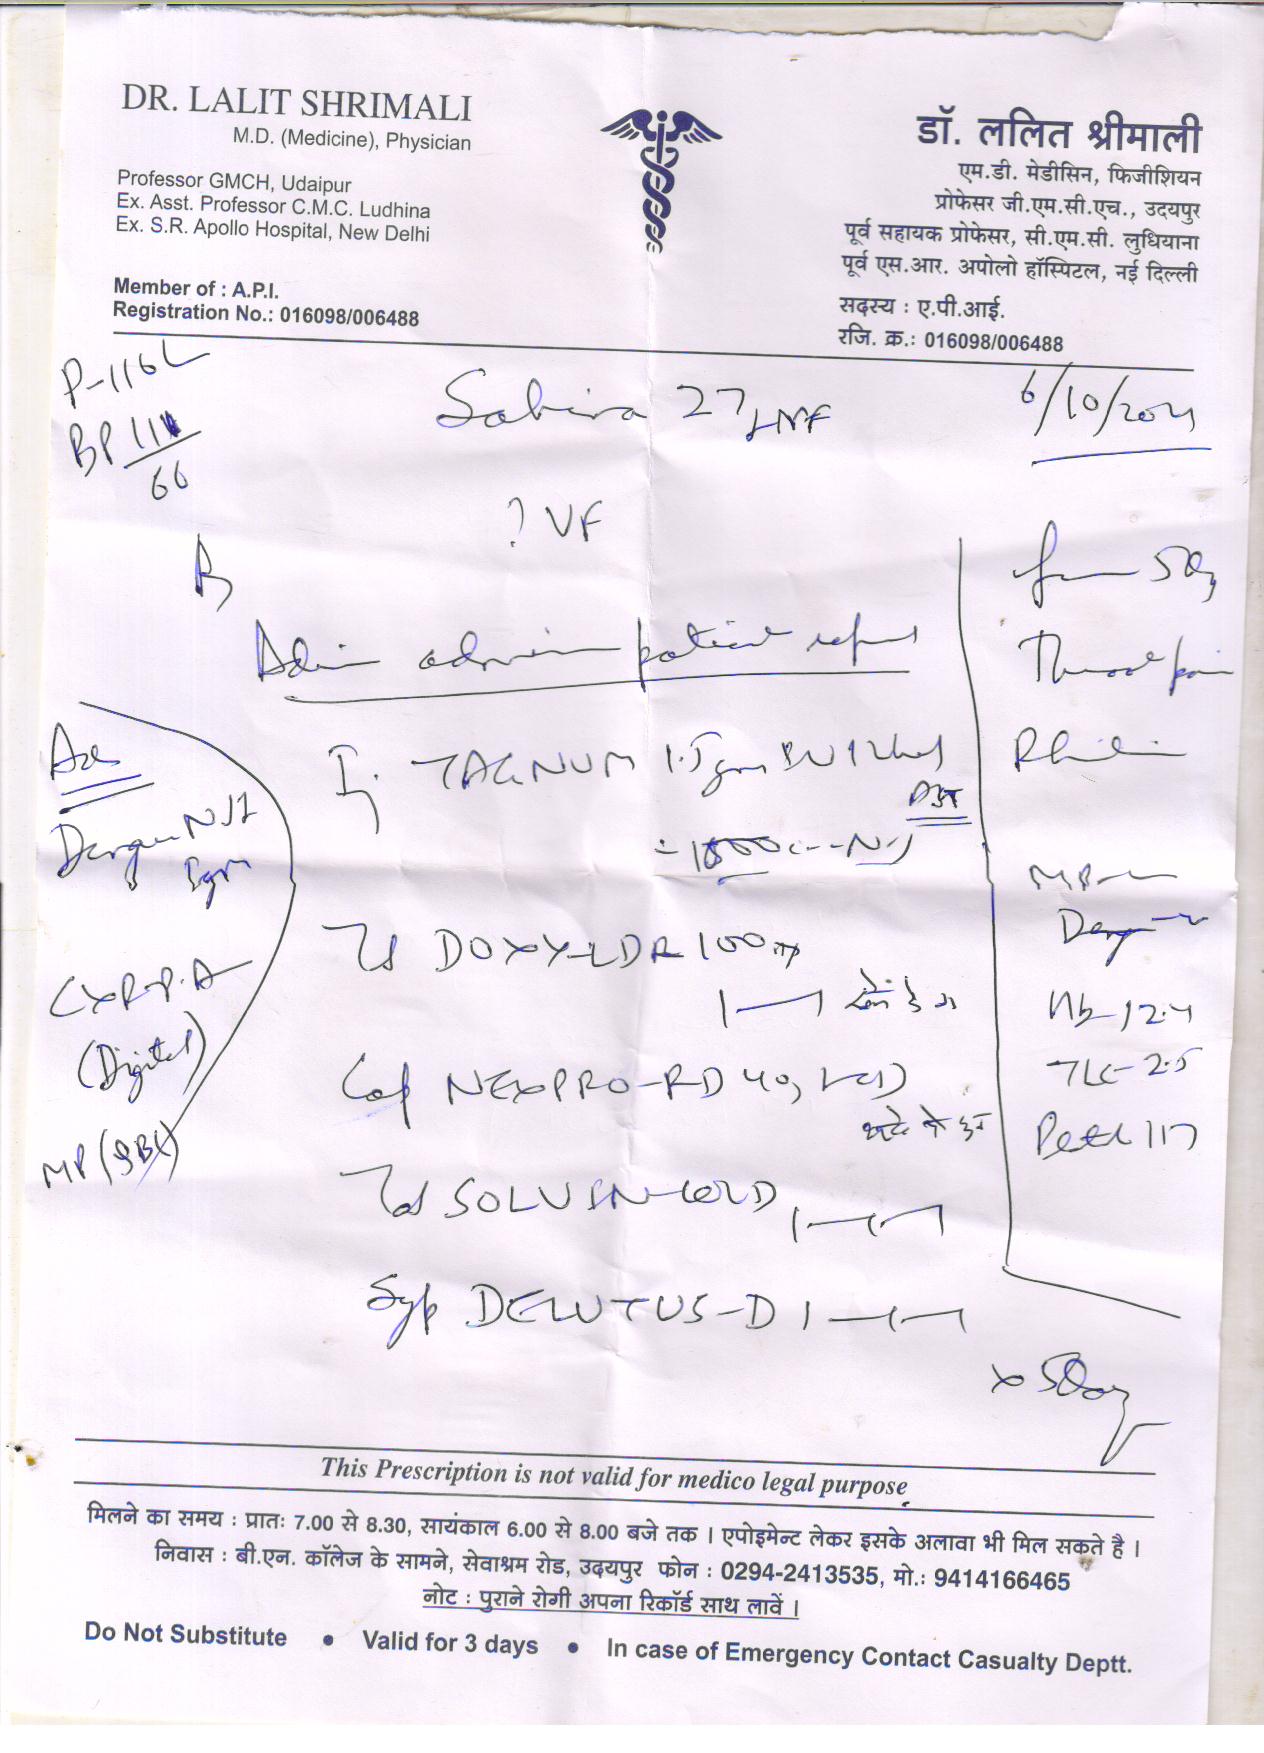 DR. LALIT SHRIMALI
M.D. (Medicine), Physician
Professor GMCH, Udaipur
Ex. Asst. Professor C.M.C. Ludhina
Ex. S.R. Apollo Hospital, New Delhi
Member of : A.P.I.
Registration No.: 016098/006488
डॉ. ललित श्रीमाली
एम.डी. मेडीसिन, फिजीशियन
प्रोफेसर जी.एम.सी.एच., उदयपुर
पूर्व सहायक प्रोफेसर, सी.एम.सी. लुधियाना
पूर्व एस.आर. अपोलो हॉस्पिटल, नई दिल्ली
सदस्य : ए.पी.आई.
रजि. क्र.: 016098/006488
P-116
BP 111/66
Sabira 27
6/10/2021
? VF
admission patient refused
Inj TAGNUM 1.5gm
DOXY-LDR 100mg
Cap NEXPRO-RD 40
SOLVIN COLD
Syp DELUTUS-D
x 5Day
Adv
Dengue NS1
CXR-P.A
(Digital)
5D
Throat pain
MP
Hb-12.4
TLC-2.5
117
This Prescription is not valid for medico legal purpose
मिलने का समय : प्रातः 7.00 से 8.30, सायंकाल 6.00 से 8.00 बजे तक । एपोइमेन्ट लेकर इसके अलावा भी मिल सकते है ।
निवास : बी.एन. कॉलेज के सामने, सेवाश्रम रोड, उदयपुर फोन : 0294-2413535, मो.: 9414166465
नोट : पुराने रोगी अपना रिकॉर्ड साथ लावें ।
Do Not Substitute • Valid for 3 days • In case of Emergency Contact Casualty Deptt.